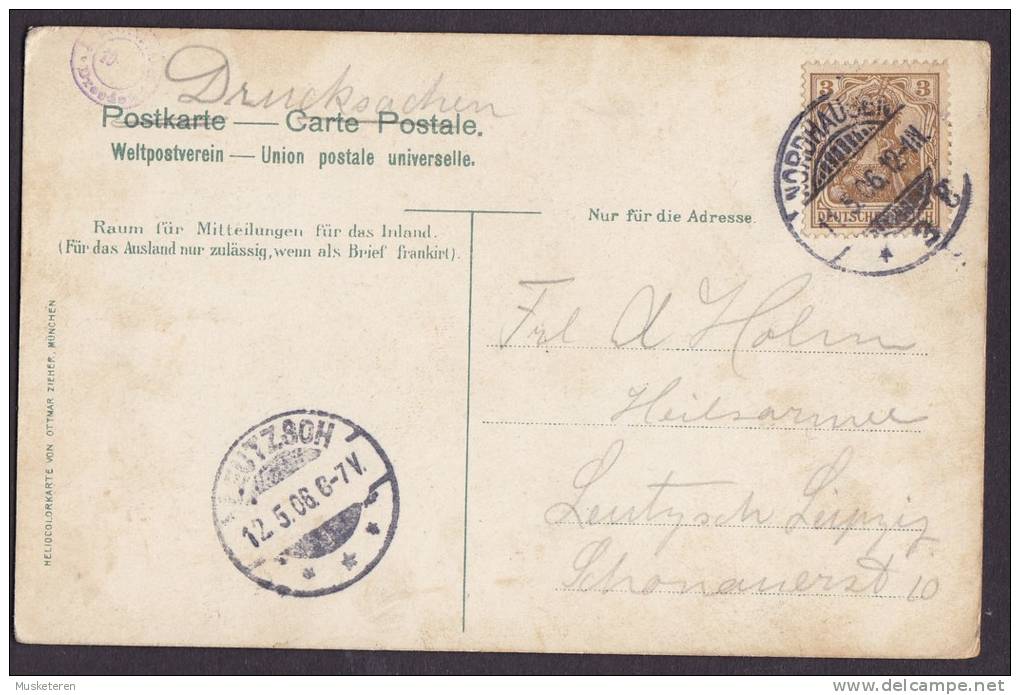 Drucksachen
Postkarte — Carte Postale.
Weltpostverein — Union postale universelle.
Raum für Mitteilungen für das Inland.
(Für das Ausland nur zulässig, wenn als Brief frankirt).
Nur für die Adresse.
3 3
DEUTSCHES REICH
NORDHAUSEN
5.06.12-1N.
Frl A Holm
Heilsarmee
Leutzsch Leipzig
Schönauerst 10
LEUTZSCH
12.5.06.6-7V.
HELIOCOLORKARTE VON OTTMAR ZIEHER, MÜNCHEN
Dresden
Musketeren
delcampe.net